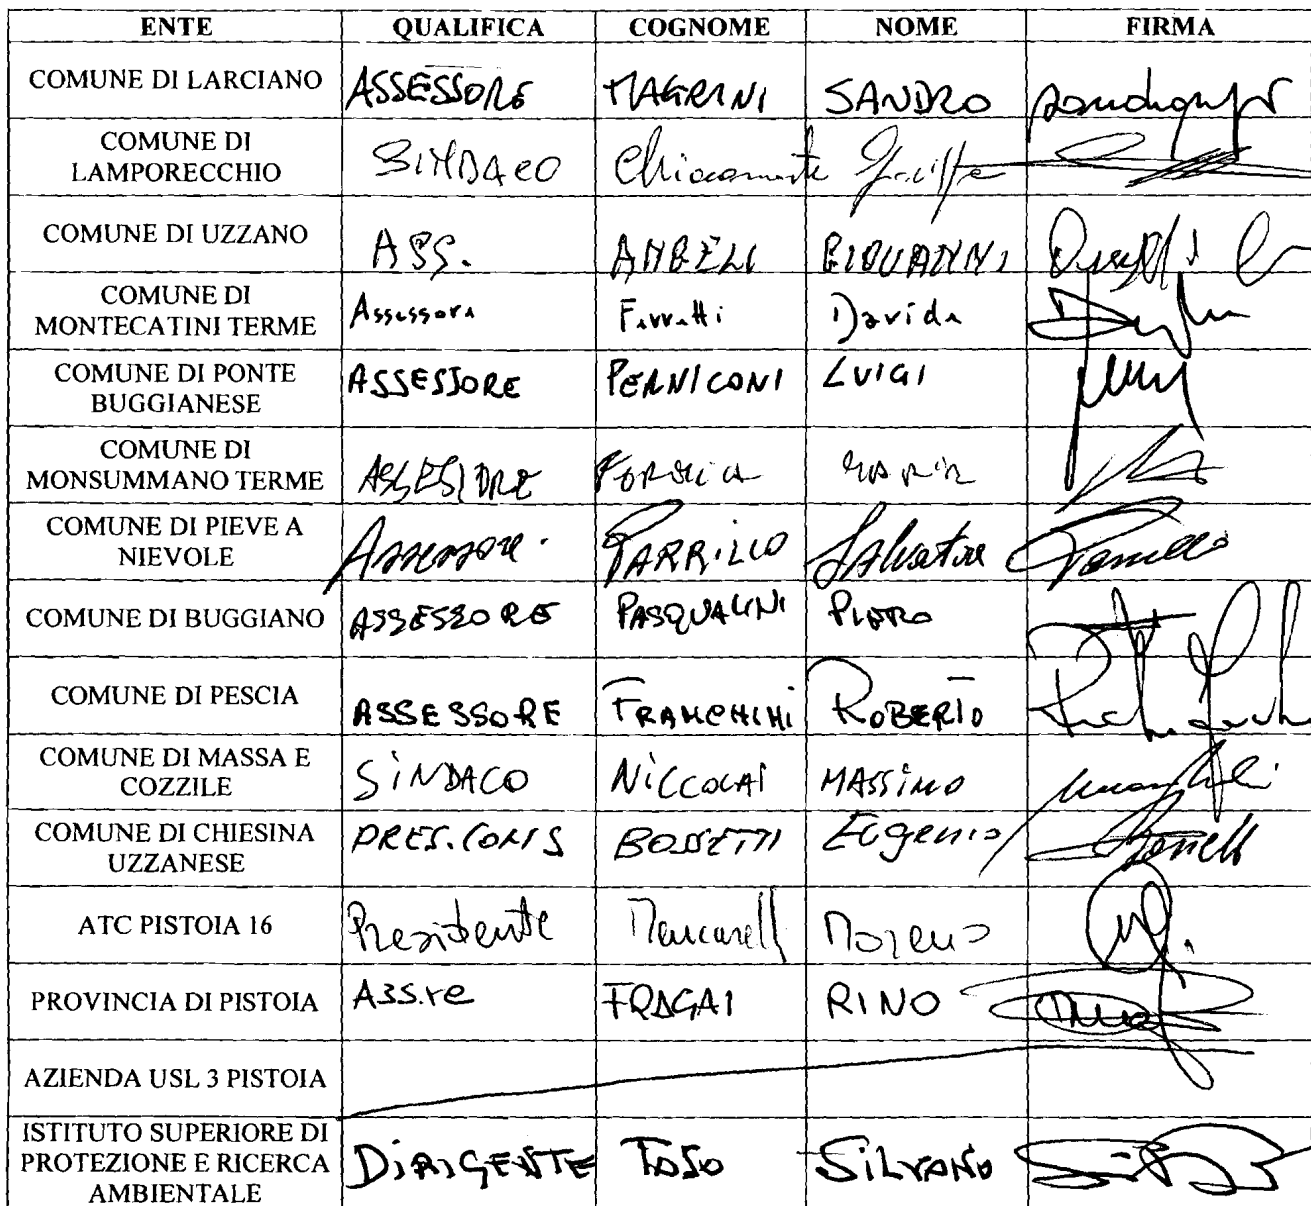 ENTE QUALIFICA COGNOME NOME FIRMA
COMUNE DI LARCIANO ASSESSORE MAGRINI SANDRO
COMUNE DI
LAMPORECCHIO SINDACO Chiaramonte
COMUNE DI UZZANO ASS. ANGELI GIOVANNI
COMUNE DI
MONTECATINI TERME Assessore Ferretti Davide
COMUNE DI PONTE
BUGGIANESE ASSESSORE PERNICONI LUIGI
COMUNE DI
MONSUMMANO TERME ASSESSORE
COMUNE DI PIEVE A
NIEVOLE Assessore. PARRILLO Salvatore
COMUNE DI BUGGIANO ASSESSORE PASQUALINI PIETRO
COMUNE DI PESCIA ASSESSORE FRANCHINI ROBERTO
COMUNE DI MASSA E
COZZILE SINDACO NICCOLAI MASSIMO
COMUNE DI CHIESINA
UZZANESE PRES. CONS BOSSETTI Eugenio
ATC PISTOIA 16 Presidente Moreno
PROVINCIA DI PISTOIA ASS.re FRAGAI RINO
AZIENDA USL 3 PISTOIA
ISTITUTO SUPERIORE DI
PROTEZIONE E RICERCA
AMBIENTALE DIRIGENTE TOSO SILVANO